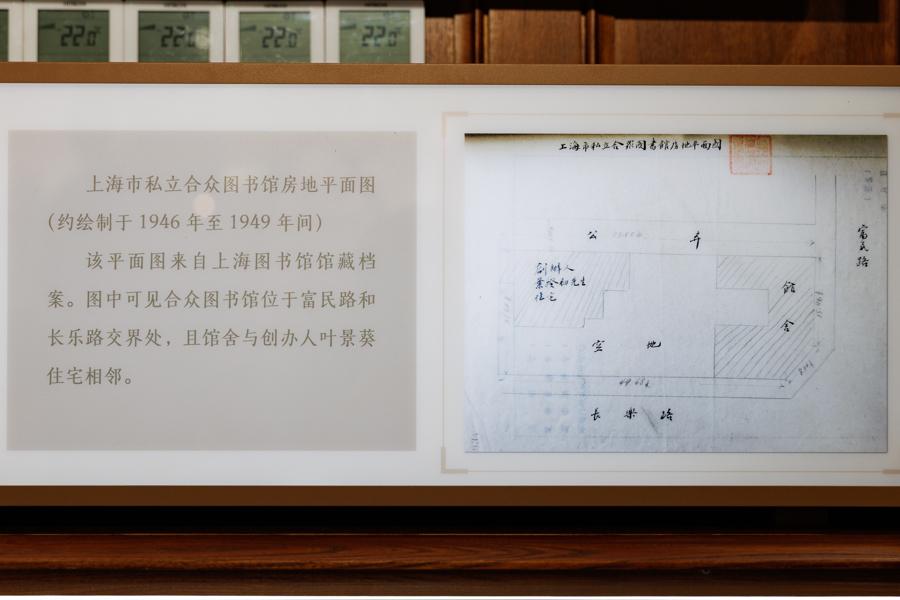 22.0
22.0
22.0
22.0
上海市私立合众图书馆房地平面图
(约绘制于 1946 年至 1949 年间)
该平面图来自上海图书馆馆藏档
案。图中可见合众图书馆位于富民路和
长乐路交界处，且馆舍与创办人叶景葵
住宅相邻。
上海市私立合衆圖書館房地平面図
公 弄
富民路
創辦人
葉揆初先生
住宅
館
舍
空 地
長樂路